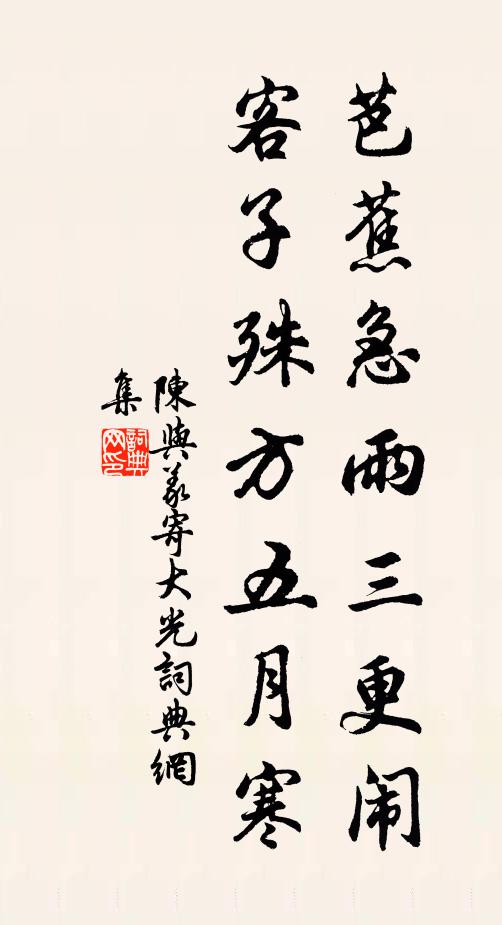 芭蕉急雨三更闹
客子殊方五月寒
陳與義寄大光詞典網
集
詞典网印